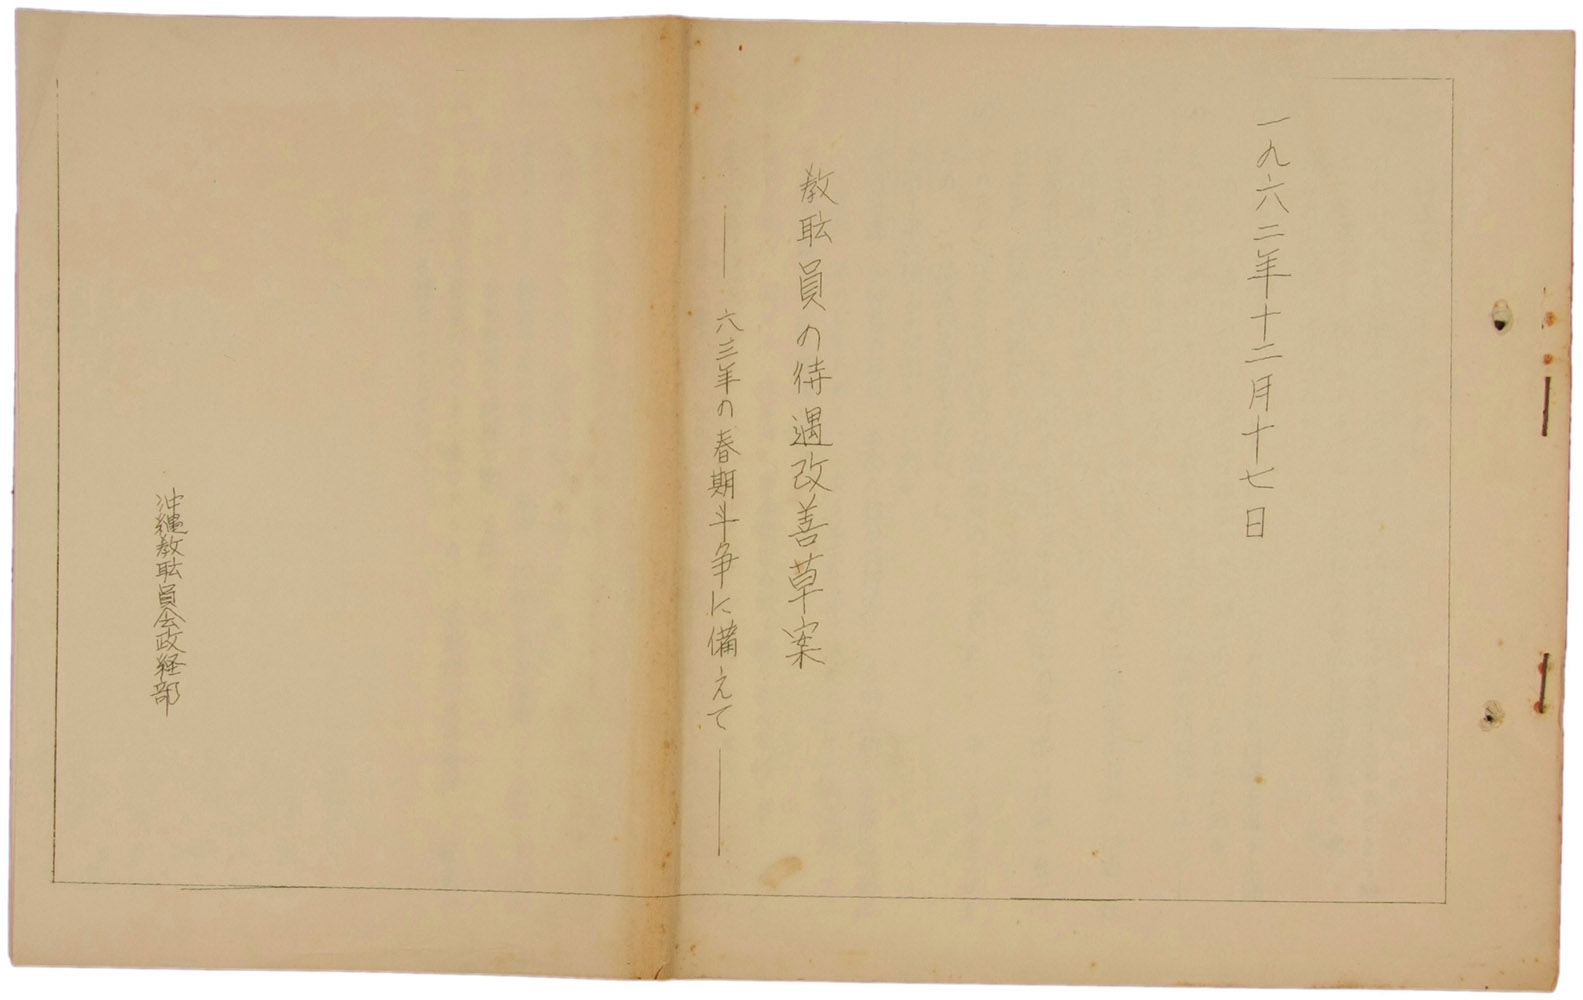 一九六二年十二月十七日
教耺員の待遇改善草案
――六三年の春期斗争に備えて――
沖縄教耺員会政経部